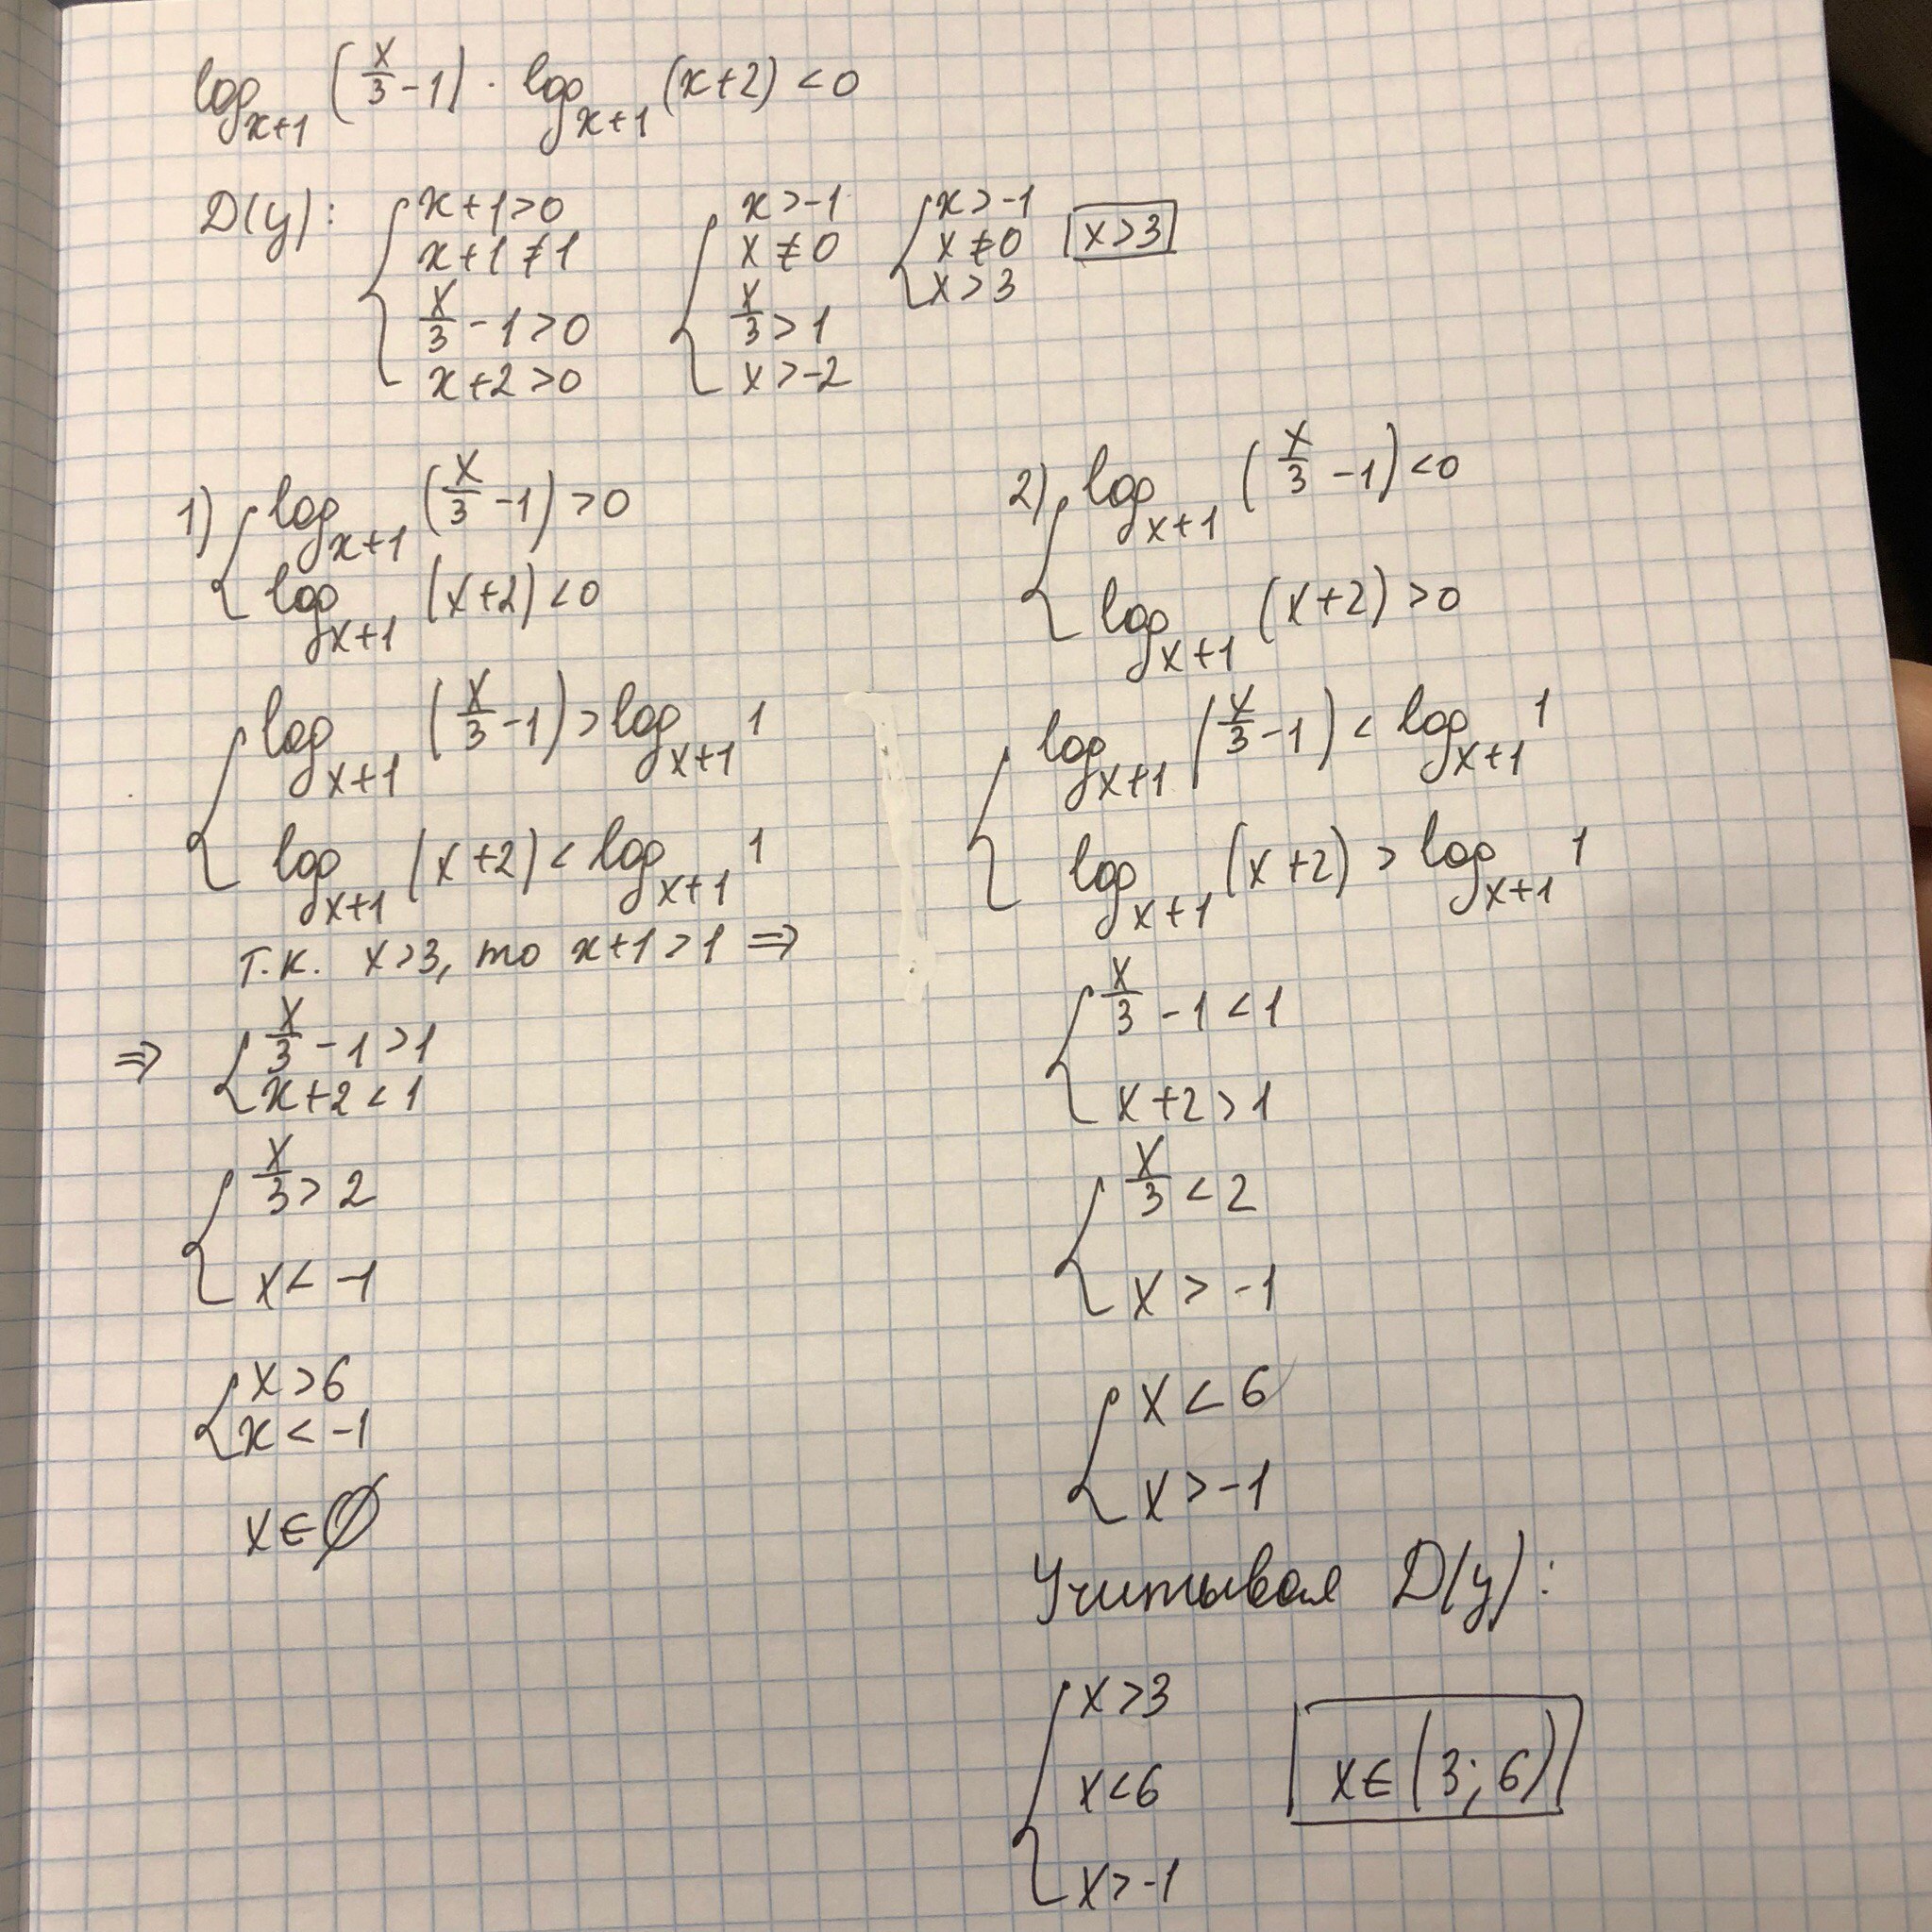 log_{x+1} (x/3 - 1) · log_{x+1} (x+2) < 0
D(y): { x+1>0 { x>-1 { x>-1 [x>3]
x+1≠1 x≠0 x≠0
x/3 - 1 > 0 x/3 > 1 x>3
x+2>0 x>-2
1) { log_{x+1} (x/3 - 1) > 0
log_{x+1} (x+2) < 0
{ log_{x+1} (x/3 - 1) > log_{x+1} 1
log_{x+1} (x+2) < log_{x+1} 1
т.к. x>3, то x+1>1 ⇒
⇒ { x/3 - 1 > 1
x+2<1
{ x/3 > 2
x < -1
{ x>6
x < -1
x ∈ ∅
2) { log_{x+1} (x/3 - 1) < 0
log_{x+1} (x+2) > 0
{ log_{x+1} (x/3 - 1) < log_{x+1} 1
log_{x+1} (x+2) > log_{x+1} 1
{ x/3 - 1 < 1
x+2>1
{ x/3 < 2
x > -1
{ x < 6
x > -1
Учитывая D(y):
{ x>3
x<6 [x ∈ (3; 6)]
x>-1